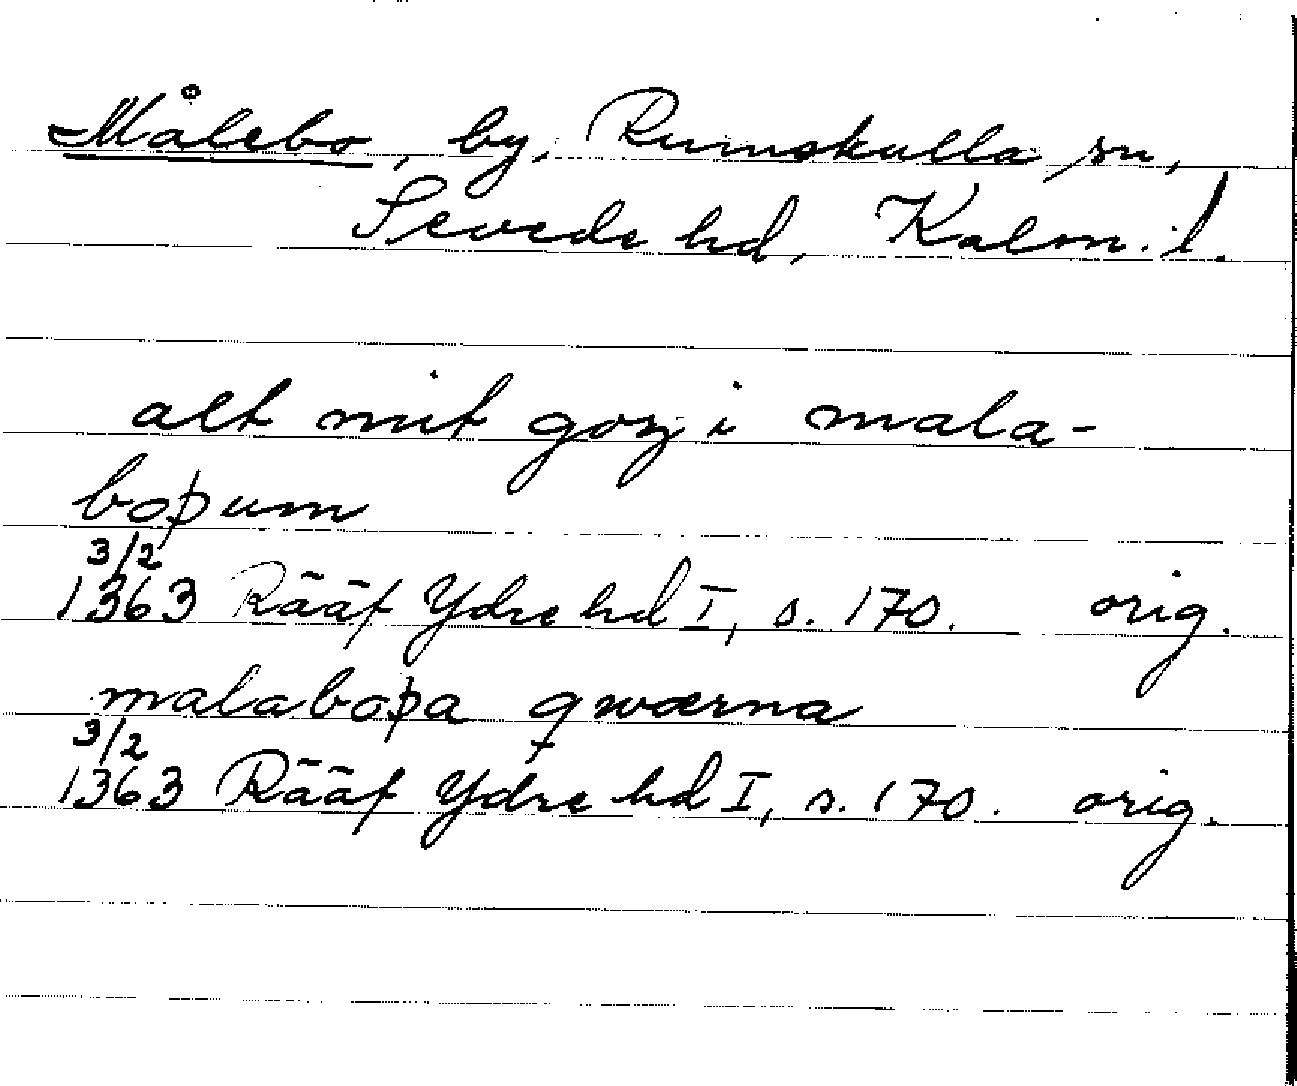 Målebo, by, Rumskulla sn,
Sevede hd, Kalm. l.
alt mit goz i mala-
boþum
3/2
1363 Rääf Ydre hd I, s. 170. orig.
malaboþa qwærna
3/2
1363 Rääf Ydre hd I, s. 170. orig.